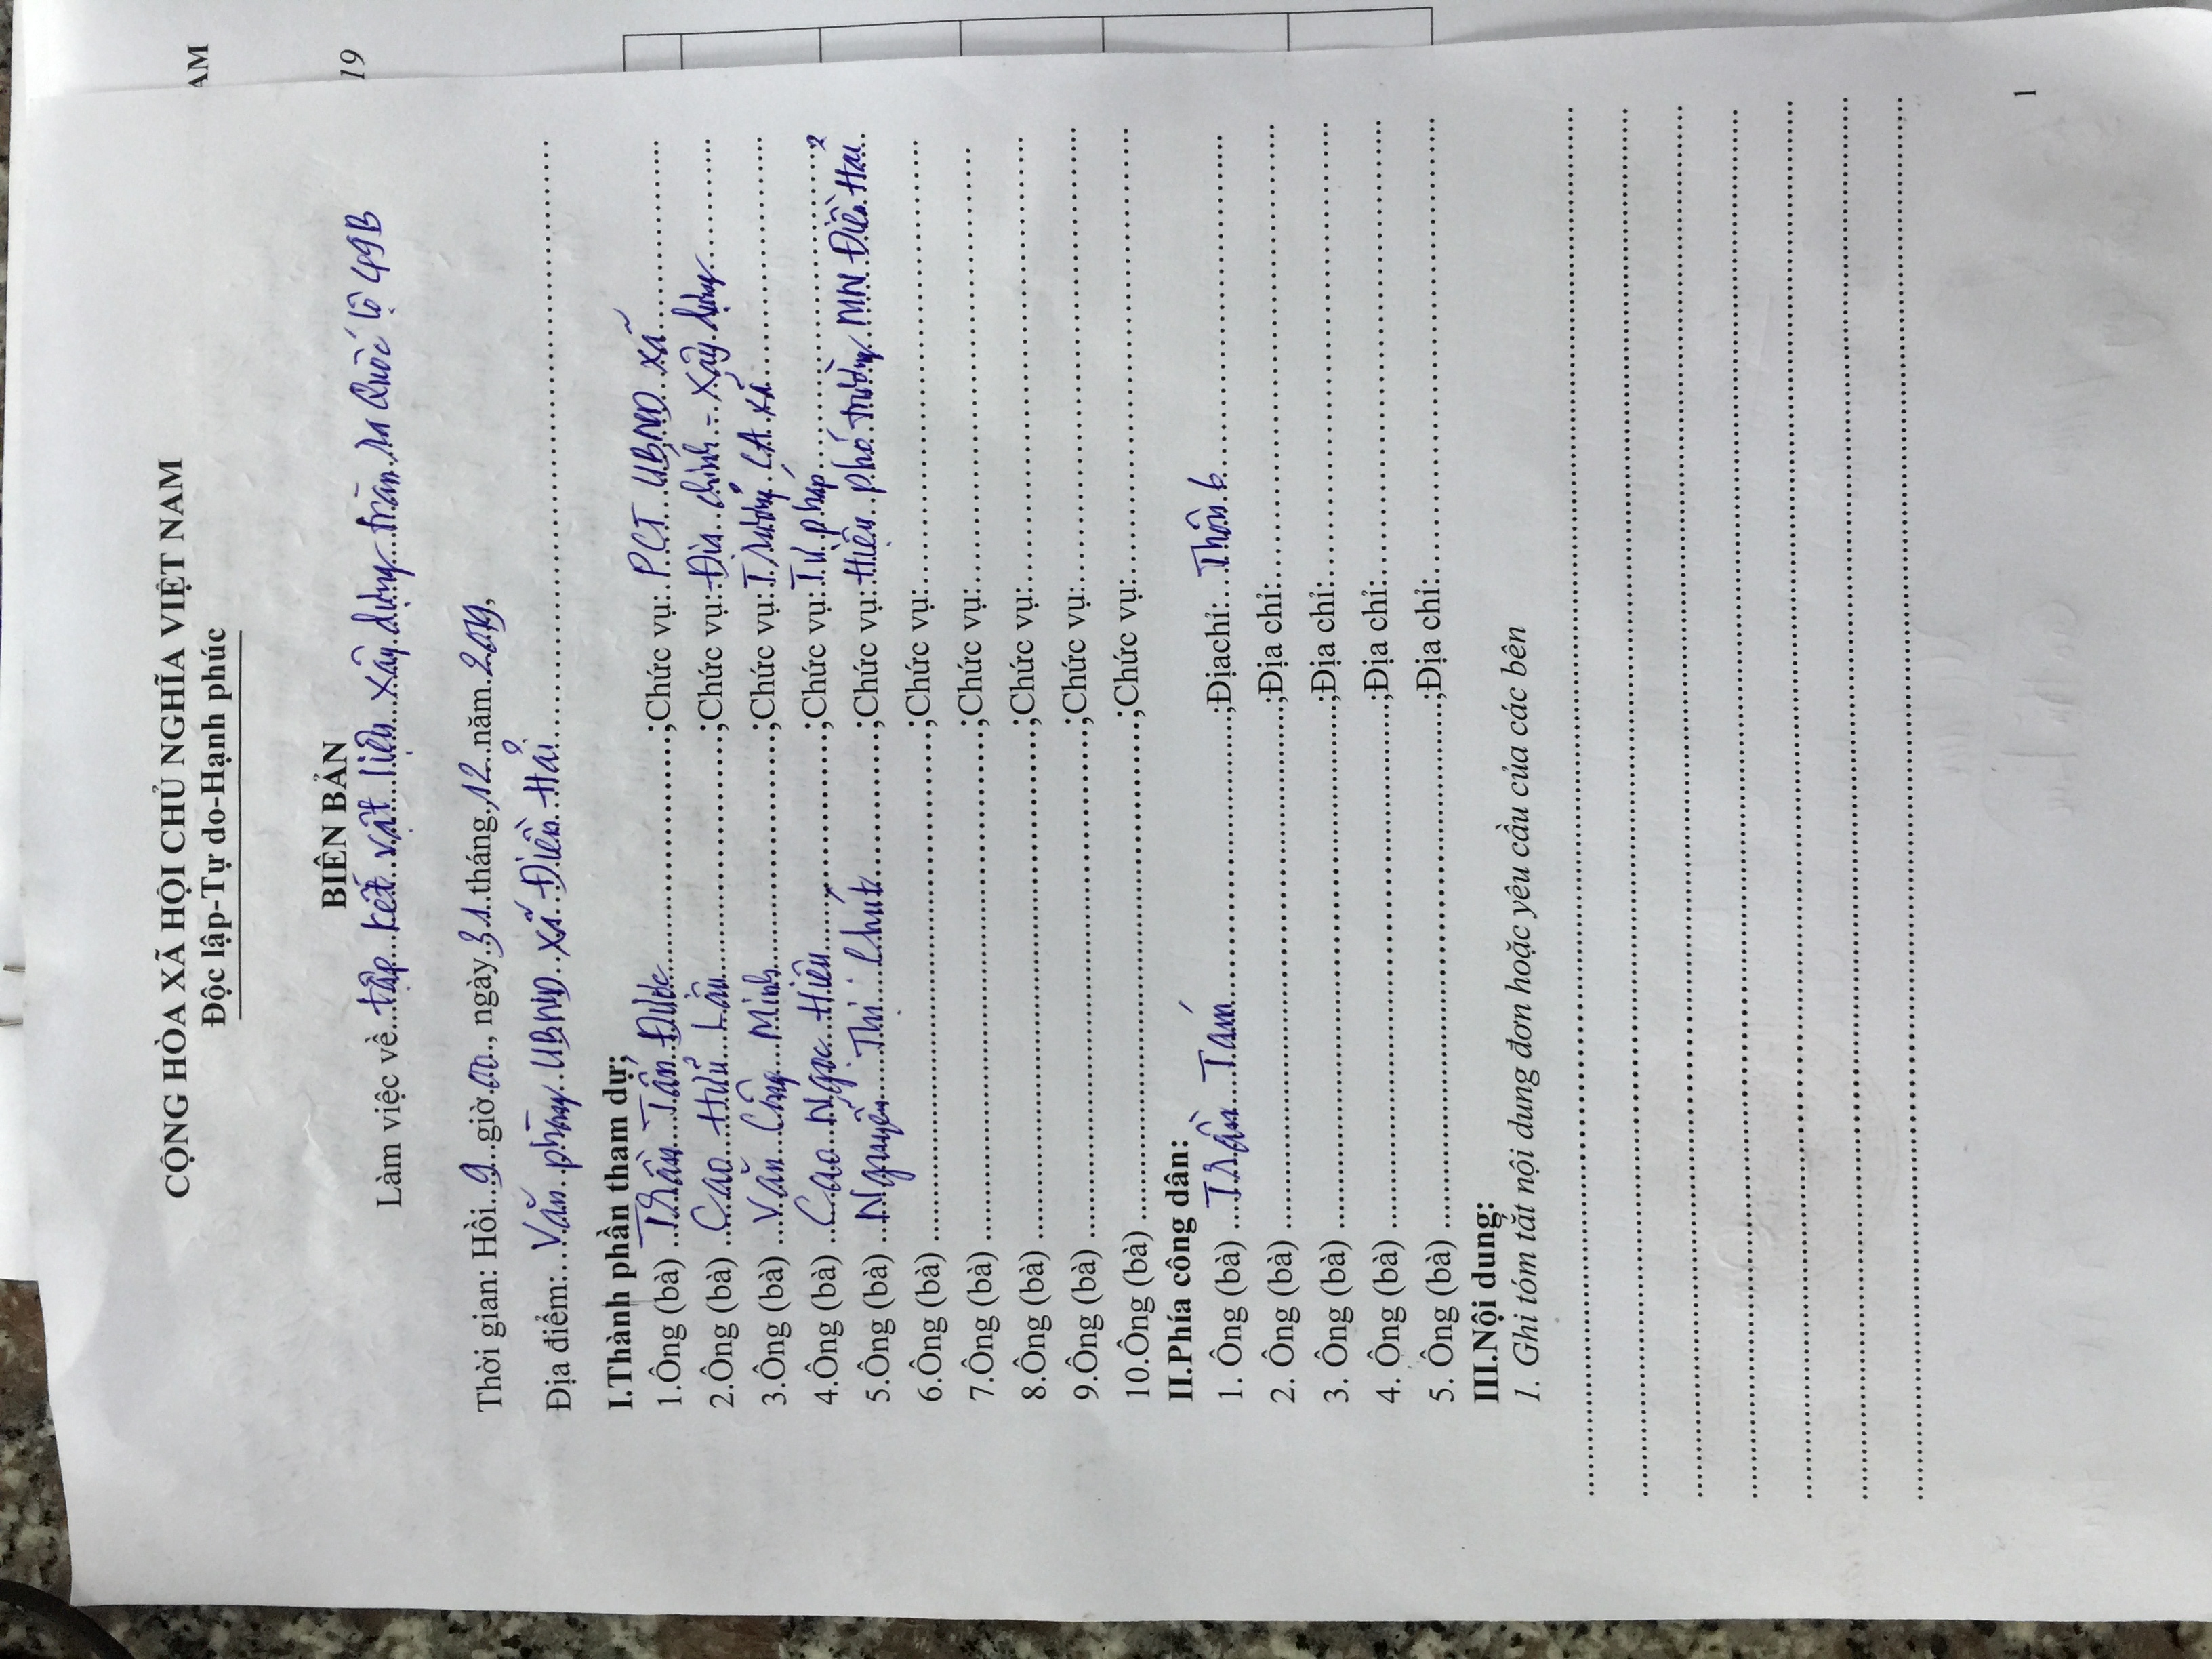 AM
19
CỘNG HÒA XÃ HỘI CHỦ NGHĨA VIỆT NAM
Độc lập-Tự do-Hạnh phúc
BIÊN BẢN
Làm việc về...tập...kết...vật...liệu...xây dựng...tràn ra Quốc lộ 49B
Thời gian: Hồi..9..giờ.00., ngày.31.tháng.12..năm.2019,
Địa điểm:...Văn phòng UBND xã Điền Hải
I.Thành phần tham dự;
1.Ông (bà) ...Trần Tấn Được...;Chức vụ: P.CT UBND xã
2.Ông (bà) ...Cao Hữu Lân...;Chức vụ: Địa chính - Xây dựng
3.Ông (bà) ...Văn Công Minh...;Chức vụ: Trưởng CA xã
4.Ông (bà) ...Cao Ngọc Hiên...;Chức vụ: Tư pháp
5.Ông (bà) ...Nguyễn Thị...;Chức vụ: Hiệu phó trường MN Điền Hải
6.Ông (bà) ...;Chức vụ:...
7.Ông (bà) ...;Chức vụ:...
8.Ông (bà) ...;Chức vụ:...
9.Ông (bà) ...;Chức vụ:...
10.Ông (bà) ...;Chức vụ:...
II.Phía công dân:
1. Ông (bà) ...Trần Tám...;Địachi:...Thôn 6
2. Ông (bà) ...;Địa chỉ:...
3. Ông (bà) ...;Địa chỉ:...
4. Ông (bà) ...;Địa chỉ:...
5. Ông (bà) ...;Địa chỉ:...
III.Nội dung:
1. Ghi tóm tắt nội dung đơn hoặc yêu cầu của các bên
1